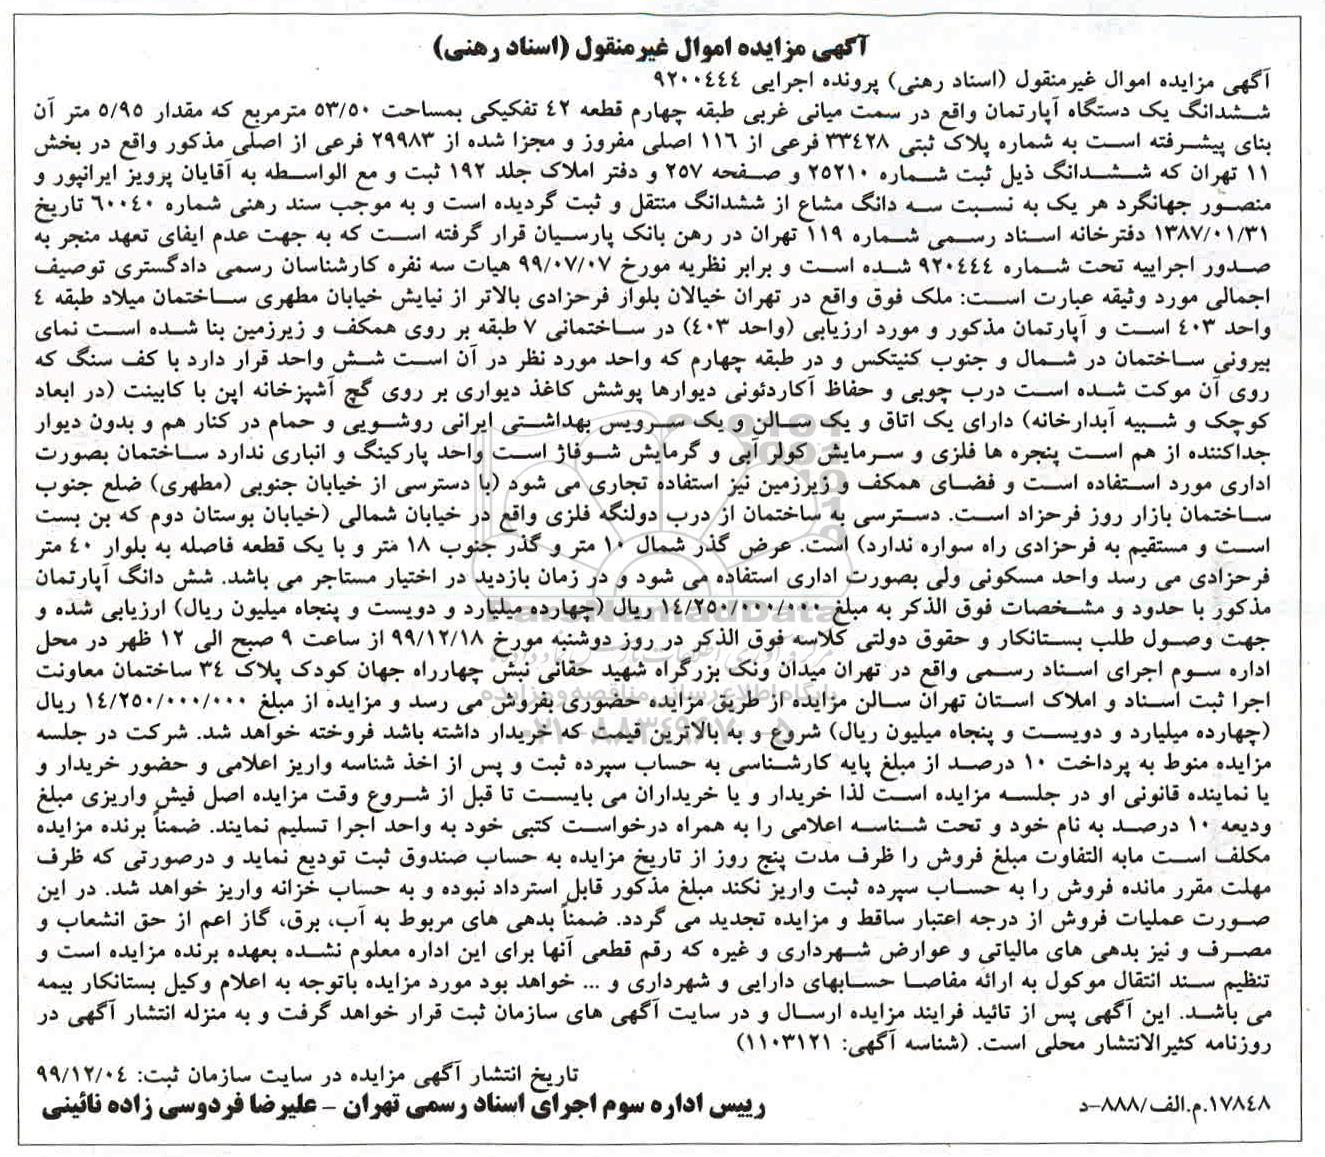 آگهی مزایده اموال غیرمنقول (اسناد رهنی)
آگهی مزایده اموال غیرمنقول (اسناد رهنی) پرونده اجرایی ۹۲۰۰۴۴۴
ششدانگ یک دستگاه آپارتمان واقع در سمت میانی غربی طبقه چهارم قطعه ۴۲ تفکیکی بمساحت ۵۳/۵۰ مترمربع که مقدار ۵/۹۵ متر آن
بنای پیشرفته است به شماره پلاک ثبتی ۳۳۴۲۸ فرعی از ۱۱۶ اصلی مفروز و مجزا شده از ۲۹۹۸۳ فرعی از اصلی مذکور واقع در بخش
۱۱ تهران که ششدانگ ذیل ثبت شماره ۲۵۲۱۰ و صفحه ۲۵۷ و دفتر املاک جلد ۱۹۲ ثبت و مع الواسطه به آقایان پرویز ایرانپور و
منصور جهانگرد هر یک به نسبت سه دانگ مشاع از ششدانگ منتقل و ثبت گردیده است و به موجب سند رهنی شماره ۶۰۰۴۰ تاریخ
۱۳۸۷/۰۱/۳۱ دفترخانه اسناد رسمی شماره ۱۱۹ تهران در رهن بانک پارسیان قرار گرفته است که به جهت عدم ایفای تعهد منجر به
صدور اجراییه تحت شماره ۹۲۰۴۴۴ شده است و برابر نظریه مورخ ۹۹/۰۷/۰۷ هیات سه نفره کارشناسان رسمی دادگستری توصیف
اجمالی مورد وثیقه عبارت است: ملک فوق واقع در تهران خیالان بلوار فرحزادی بالاتر از نیایش خیابان مطهری ساختمان میلاد طبقه ۴
واحد ۴۰۳ است و آپارتمان مذکور و مورد ارزیابی (واحد ۴۰۳) در ساختمانی ۷ طبقه بر روی همکف و زیرزمین بنا شده است نمای
بیرونی ساختمان در شمال و جنوب کنیتکس و در طبقه چهارم که واحد مورد نظر در آن است شش واحد قرار دارد با کف سنگ که
روی آن موکت شده است درب چوبی و حفاظ آکاردئونی دیوارها پوشش کاغذ دیواری بر روی گچ آشپزخانه اپن با کابینت (در ابعاد
کوچک و شبیه آبدارخانه) دارای یک اتاق و یک سالن و یک سرویس بهداشتی ایرانی روشویی و حمام در کنار هم و بدون دیوار
جداکننده از هم است پنجره ها فلزی و سرمایش کولر آبی و گرمایش شوفاژ است واحد پارکینگ و انباری ندارد ساختمان بصورت
اداری مورد استفاده است و فضای همکف و زیرزمین نیز استفاده تجاری می شود (با دسترسی از خیابان جنوبی (مطهری) ضلع جنوب
ساختمان بازار روز فرحزاد است. دسترسی به ساختمان از درب دولنگه فلزی واقع در خیابان شمالی (خیابان بوستان دوم که بن بست
است و مستقیم به فرحزادی راه سواره ندارد) است. عرض گذر شمال ۱۰ متر و گذر جنوب ۱۸ متر و با یک قطعه فاصله به بلوار ۴۰ متر
فرحزادی می رسد واحد مسکونی ولی بصورت اداری استفاده می شود و در زمان بازدید در اختیار مستاجر می باشد. شش دانگ آپارتمان
مذکور با حدود و مشخصات فوق الذکر به مبلغ ۱۴/۲۵۰/۰۰۰/۰۰۰ ریال (چهارده میلیارد و دویست و پنجاه میلیون ریال) ارزیابی شده و
جهت وصول طلب بستانکار و حقوق دولتی کلاسه فوق الذکر در روز دوشنبه مورخ ۹۹/۱۲/۱۸ از ساعت ۹ صبح الی ۱۲ ظهر در محل
اداره سوم اجرای اسناد رسمی واقع در تهران میدان ونک بزرگراه شهید حقانی نبش چهارراه جهان کودک پلاک ۳۴ ساختمان معاونت
اجرا ثبت اسناد و املاک استان تهران سالن مزایده از طریق مزایده حضوری بفروش می رسد و مزایده از مبلغ ۱۴/۲۵۰/۰۰۰/۰۰۰ ریال
(چهارده میلیارد و دویست و پنجاه میلیون ریال) شروع و به بالاترین قیمت که خریدار داشته باشد فروخته خواهد شد. شرکت در جلسه
مزایده منوط به پرداخت ۱۰ درصد از مبلغ پایه کارشناسی به حساب سپرده ثبت و پس از اخذ شناسه واریز اعلامی و حضور خریدار و
یا نماینده قانونی او در جلسه مزایده است لذا خریدار و یا خریداران می بایست تا قبل از شروع وقت مزایده اصل فیش واریزی مبلغ
ودیعه ۱۰ درصد به نام خود و تحت شناسه اعلامی را به همراه درخواست کتبی خود به واحد اجرا تسلیم نمایند. ضمناً برنده مزایده
مکلف است مابه التفاوت مبلغ فروش را ظرف مدت پنج روز از تاریخ مزایده به حساب صندوق ثبت تودیع نماید و درصورتی که ظرف
مهلت مقرر مانده فروش را به حساب سپرده ثبت واریز نکند مبلغ مذکور قابل استرداد نبوده و به حساب خزانه واریز خواهد شد. در این
صورت عملیات فروش از درجه اعتبار ساقط و مزایده تجدید می گردد. ضمناً بدهی های مربوط به آب، برق، گاز اعم از حق انشعاب و
مصرف و نیز بدهی های مالیاتی و عوارض شهرداری و غیره که رقم قطعی آنها برای این اداره معلوم نشده بعهده برنده مزایده است و
تنظیم سند انتقال موکول به ارائه مفاصا حسابهای دارایی و شهرداری و ... خواهد بود مورد مزایده باتوجه به اعلام وکیل بستانکار بیمه
می باشد. این آگهی پس از تائید فرایند مزایده ارسال و در سایت آگهی های سازمان ثبت قرار خواهد گرفت و به منزله انتشار آگهی در
روزنامه کثیرالانتشار محلی است. (شناسه آگهی: ۱۱۰۳۱۲۱)
تاریخ انتشار آگهی مزایده در سایت سازمان ثبت: ۹۹/۱۲/۰۴
رییس اداره سوم اجرای اسناد رسمی تهران - علیرضا فردوسی زاده نائینی
۱۷۸۴۸.م.الف/۸۸۸-د
ParsNamadData
پایگاه اطلاع رسانی مناقصه و مزایده